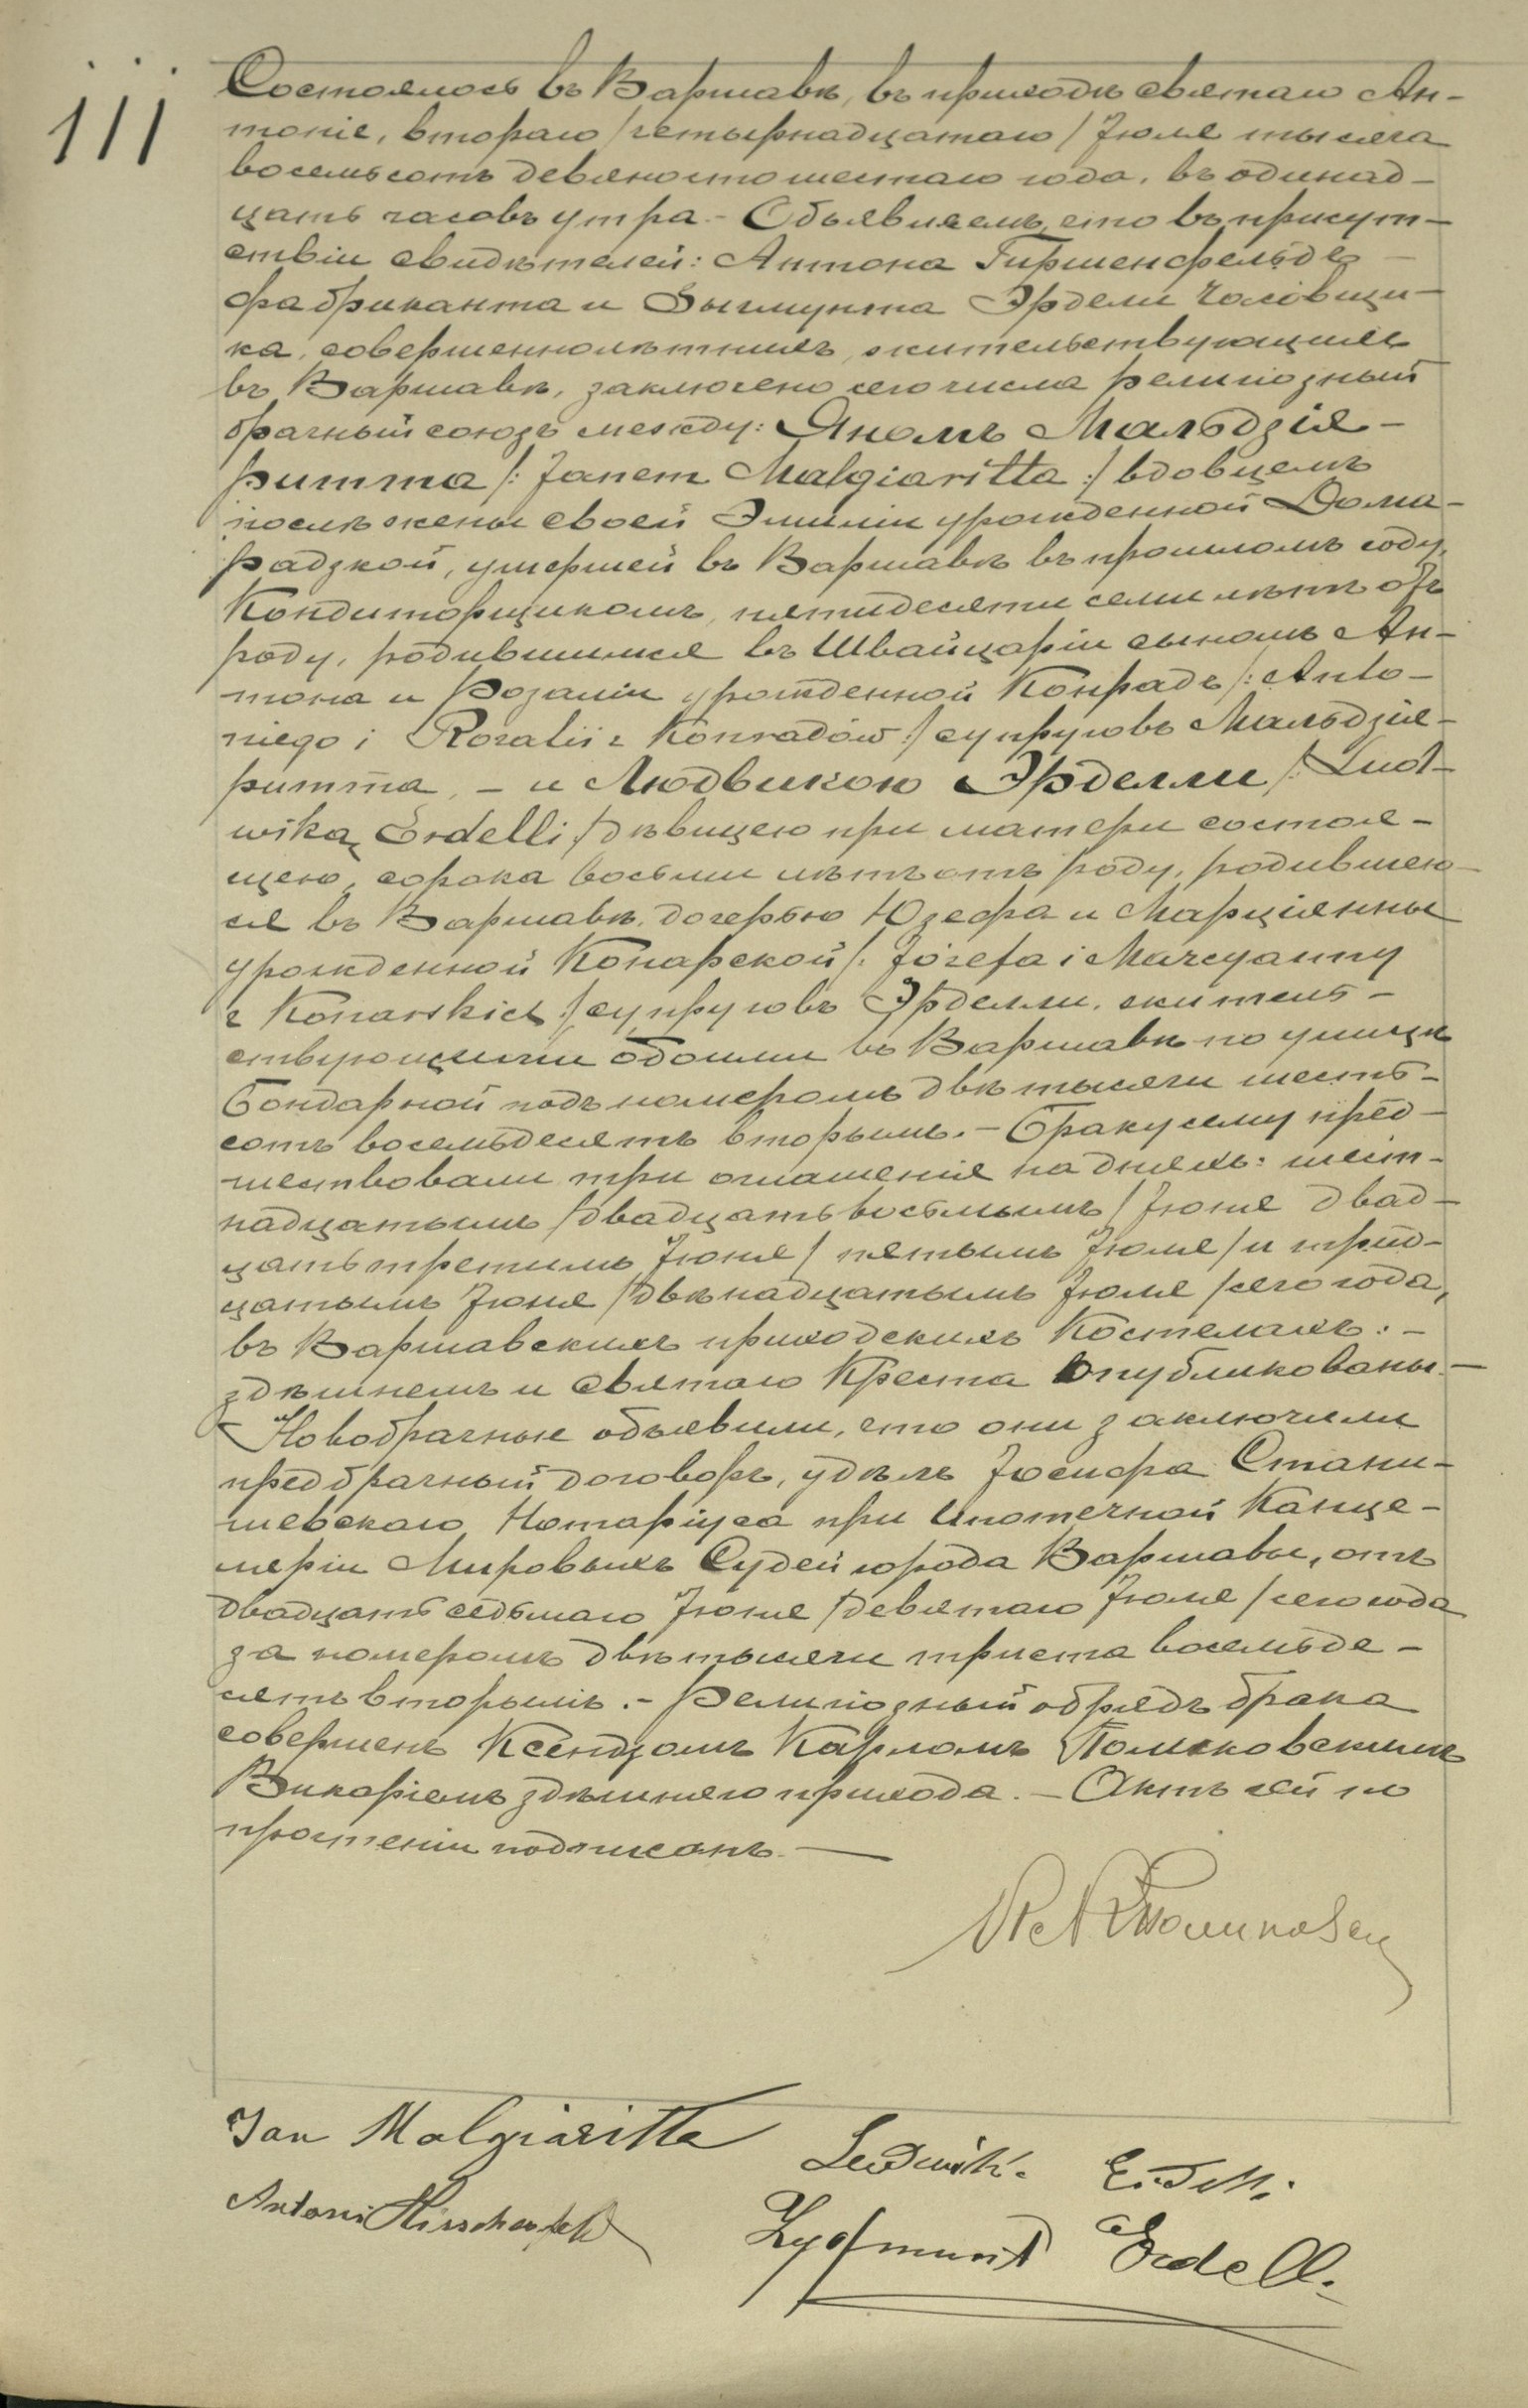 111
Состоялось въ Варшавѣ, въ приходѣ святаго Ан-
тонiя, втораго /четырнадцатаго/ Iюля тысяча
восемьсотъ девяностошестаго года, въ одинад-
цать часовъ утра. – Объявляемъ, что въ присут-
ствiи свидѣтелей: Антона Гиршенфельда –
фабриканта и Зыгмунта Эрдели Часовщи-
ка, совершеннолѣтнихъ, жительствующихъ
въ Варшавѣ, заключено сего числа религiозный
брачный союзъ между: Яномъ Мальдзiя-
ритта /: Janem Malgiaritta :/ вдовцемъ
послѣ жены своей Эмилiи урожденной Дома-
радзкой, умершей въ Варшавѣ въ прошломъ году,
Кондиторщикомъ, пятидесяти семи лѣтъ отъ
роду, родившимся въ Швайцарiи сыномъ Ан-
тона и Розалiи урожденной Конрадъ /: Anto-
niego i Rozalii z Konradów :/ супруговъ Мальдзiя-
ритта, – и Людвикою Эрделли /: Lud-
wiką Erdelli :/ дѣвицею при матери состоя-
щею, сорока восьми лѣтъ отъ роду, родившею-
ся въ Варшавѣ, дочерью Юзефа и Марцiянны
урожденной Конарской /: Józefa i Marcyanny
z Konarskich :/ супруговъ Эрделли, жительс-
ствующими обоими въ Варшавѣ по улицѣ
Бондарной подъ номеромъ двѣ тысячи шесть-
сотъ восемьдесятъ вторымъ. – Браку сему пред-
шествовали три оглашенiя на дняхъ: шест-
надцатымъ /двадцать восьмымъ/ Iюня двад-
цать третимъ Iюня / пятымъ Iюля / и трид-
цатымъ Iюня /двѣнадцатымъ Iюля /сего года,
въ Варшавскихъ приходскихъ Костелахъ: –
здѣшнемъ и святаго Креста опубликованы. –
Новобрачные объявили, что они заключили
предбрачный договоръ, удѣлъ Iосифа Стани-
шевскаго Нотарiуса при Ипотечной Канце-
лярiи Мировыхъ Судей города Варшавы, отъ
двадцать седьмаго Iюня /девятаго Iюля /сего года
за номеромъ двѣ тысячи триста восемьде-
сятъ вторымъ. – Религiозный обрядъ брака
совершенъ Ксендзомъ Карломъ Полыковскимъ
Викарiемъ здѣшняго прихода. – Актъ сей по
прочтенiи подписанъ. —
Jan Malgiaritta
Ludwika Erdelli
Antoni Hirschenfeld
Zygmunt Erdelli